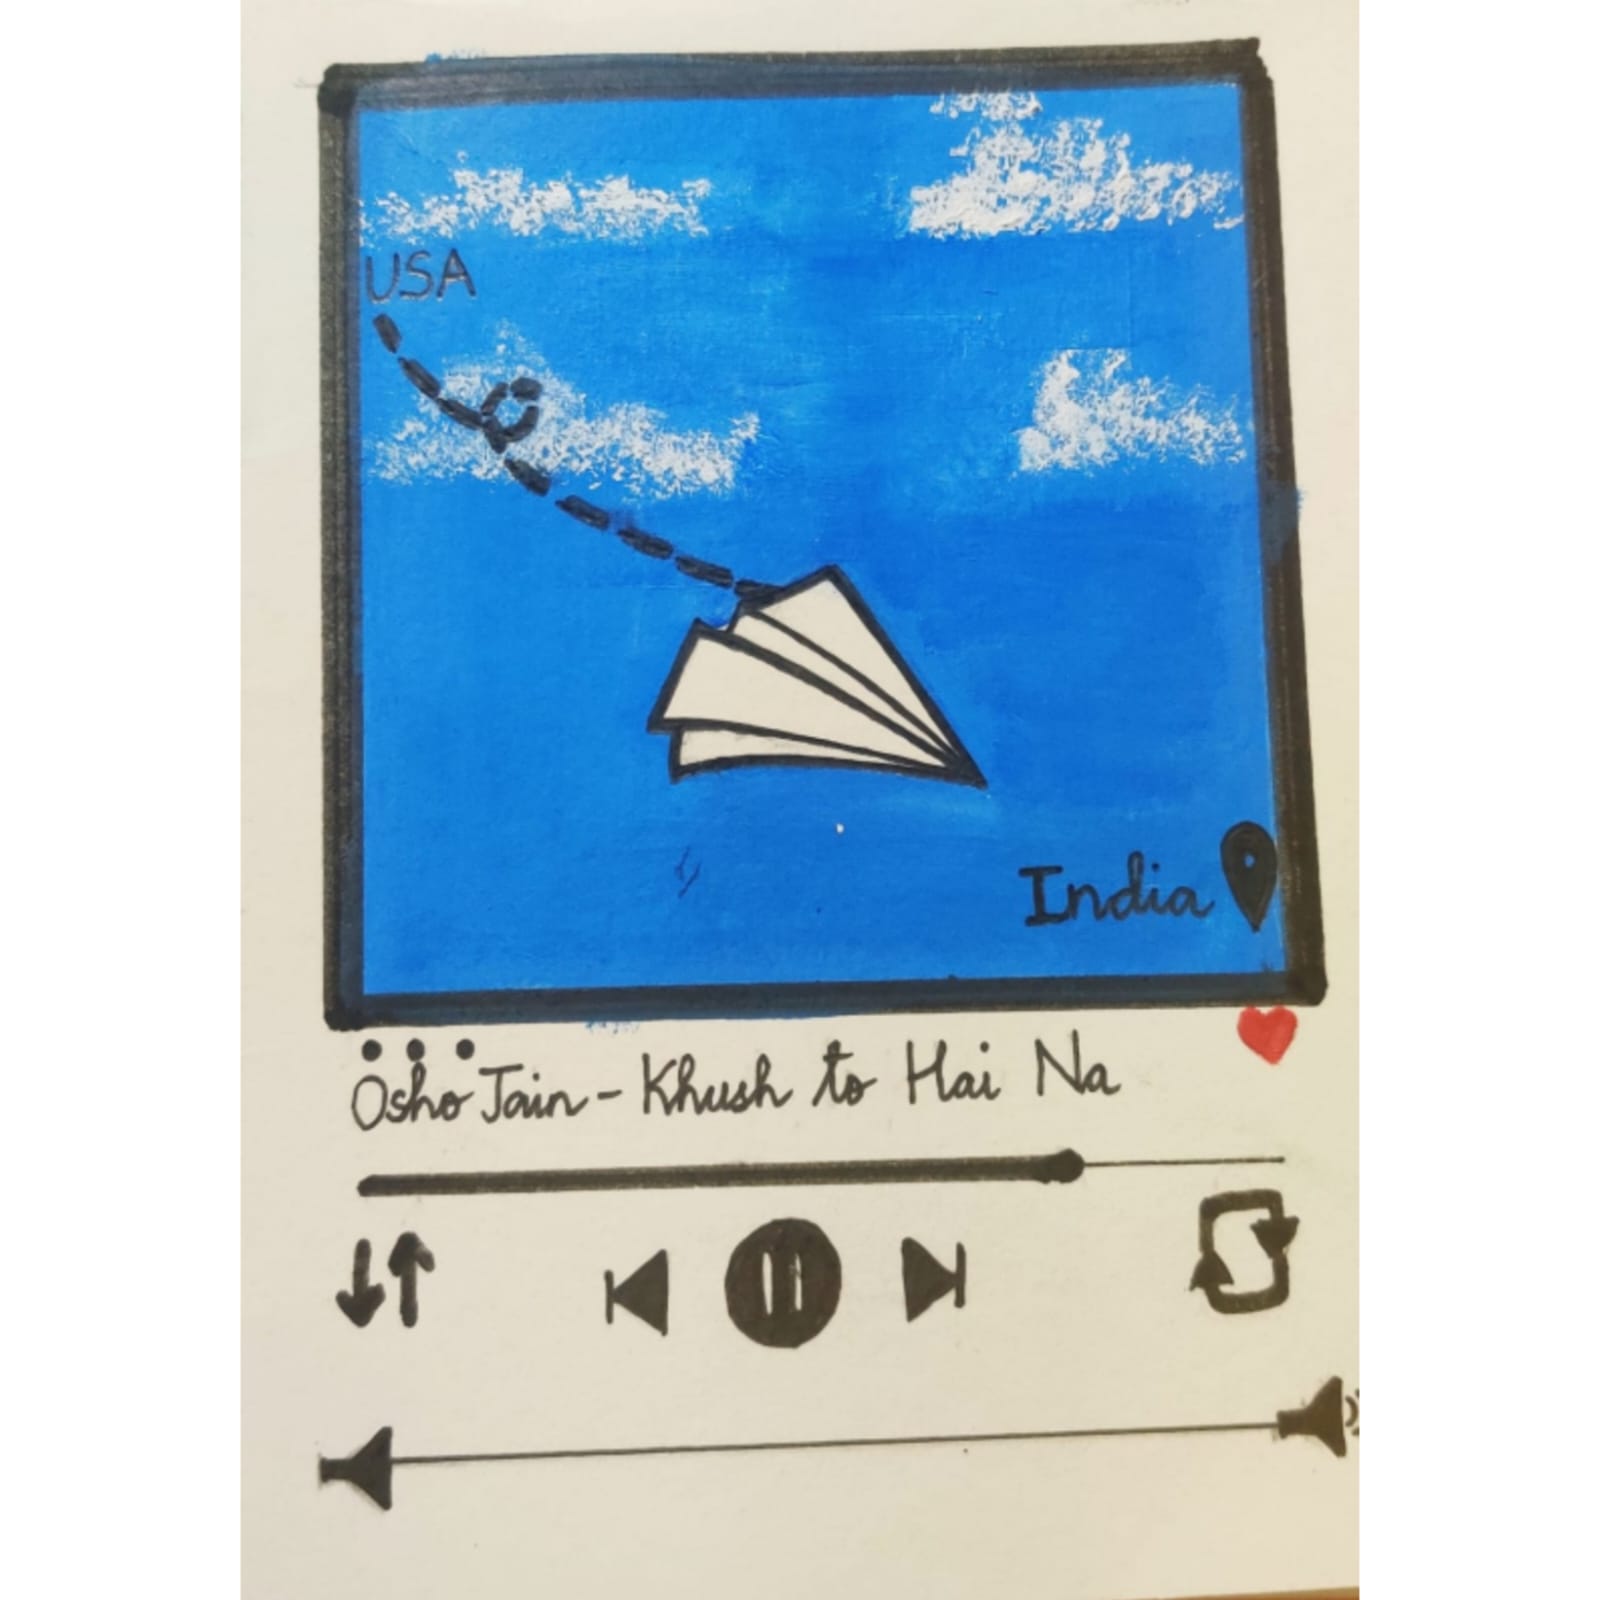 USA
India
Osho Jain - Khush to Hai Na